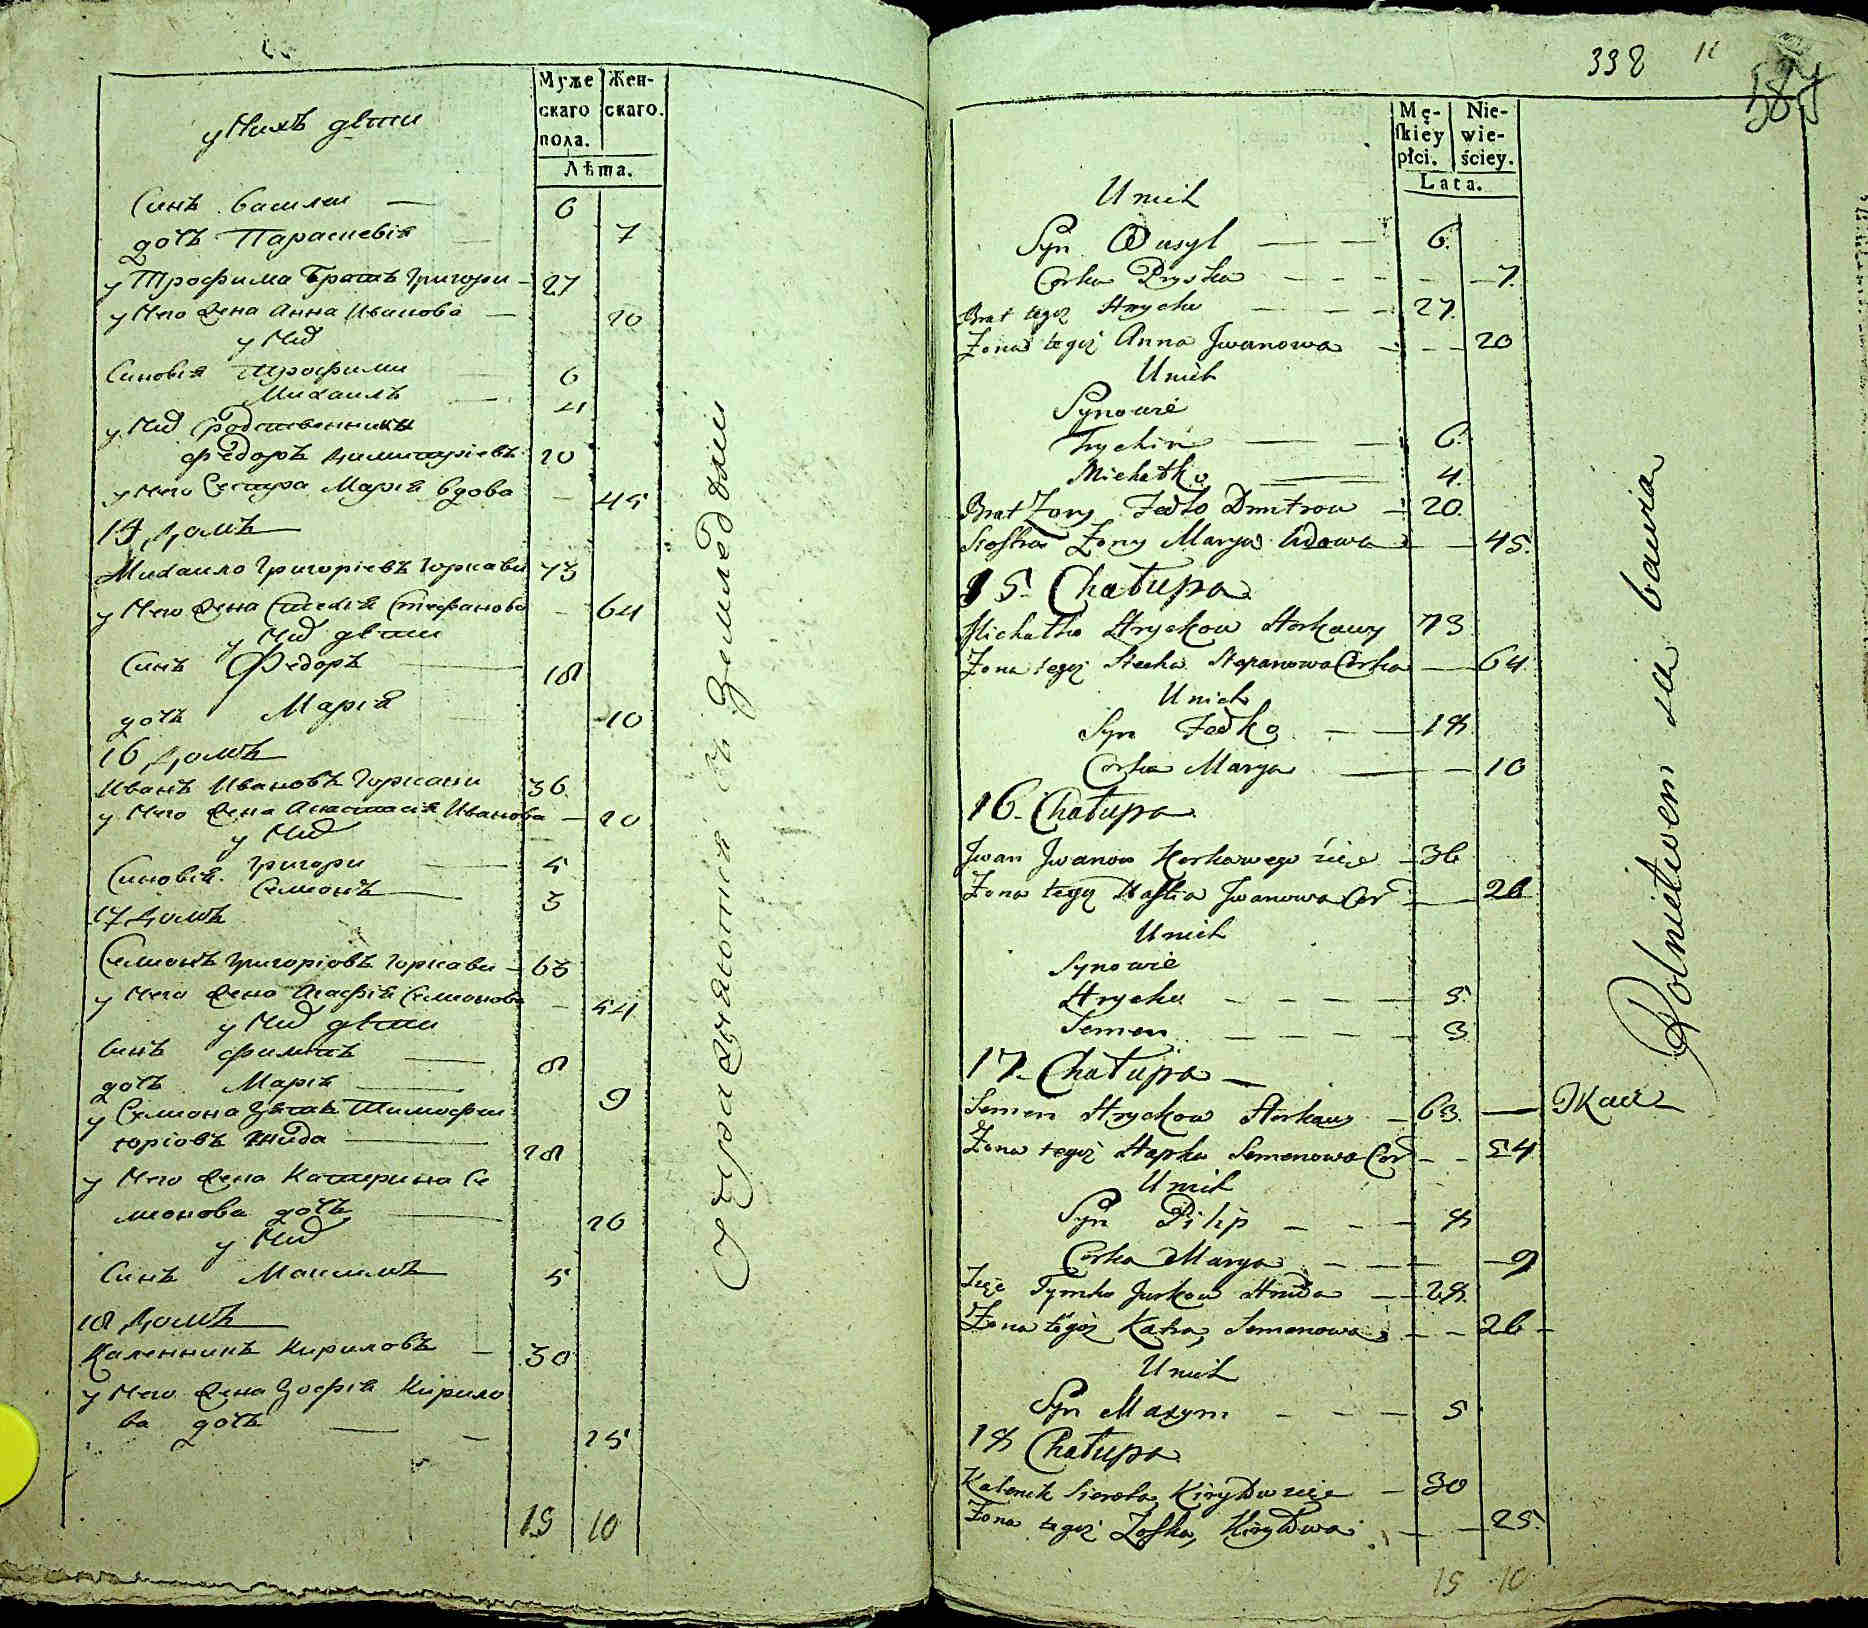 Муже
скаго
пола.
Жен-
скаго.
Лѣта.
у Нихъ дѣти
Синъ Василеи — 6
дочъ Параскевія — 7
у Трофима Братъ Григори — 27
у Него Жена Анна Иванова — 20
у Них
Синовія Трофими — 6
Михаилъ — 4
у Них родственники
Федоръ Димитріевъ 20
у Него Сестра Марія вдова — 45
15 домъ
Михаило Григоріевъ Горкави 73
у Него Жена Стехія Стефанова — 64
у Них дѣти
Синъ Федоръ — 18
дочъ Марія — 10
16 домъ
Иванъ Ивановъ Горкави 36
у Него Жена Анастасія Иванова — 20
у Них
Синовія Григори — 5
Семионъ — 3
17 домъ
Семионъ Григоріовъ Горкави — 63
у Него Жена Агафія Семионова — 54
у Них дѣти
Синъ Филипъ — 8
дочъ Марія — 9
у Семиона Зять Тимофеи
юріовъ Гнида — 28
у Него Жена Катерина Се
мионова дочъ — 26
у Них
Синъ Максимъ 5
18 домъ
Каленникъ Кириловъ — 30
у Него Жена Зофія Кирило
ва дочъ — 25
15 10
упражняются въ Земледѣліи
338
Mę-
ſkiey
płci.
Nie-
wie-
ściey.
Lata.
U nich
Syn Wasyl — — 6.
Corka Pryska — — — 7.
Brat tegoż Hrycko — — — 27.
Żona tegoż Anna Jwanowa — — — 20
U nich
Synowie
Trochim — — 6.
Michałko — 4.
Brat Żony Fedko Dmitrow — 20.
Siostra Żony Marya Wdowa — — 45.
15. Chałupa
Michałko Hryckow Horkawy 73
Żona tegoż Stecha Stepanowa Corka — 64.
U nich
Syn Fedko — — 18.
Corka Marya — — 10
16. Chałupa
Jwan Jwanow Horkawego zięć — 36
Żona tegoż Naſtia Jwanowa Cor — 26
U nich
Synowie
Hrycko — — — — 5.
Semen — — — — 3
17. Chałupa —
Semen Hryckow Horkawy — 63. — Tkacz
Żona tegoż Hapka Semenowa Cor — — 54
U nich
Syn Pilip — — — 8
Corka Marya — — — 9
Zięć Tymko Jurkow Hnida — — 28.
Żona tegoż Katra, Semenowa — — 26 —
U nich
Syn Maxym — — — 5
18 Chałupa
Kalenik Sierota Kiryłow zięć — 30
Żona tegoż Zoſka, Kiryłowa — — 25.
15 10
Rolnictwem się bawią